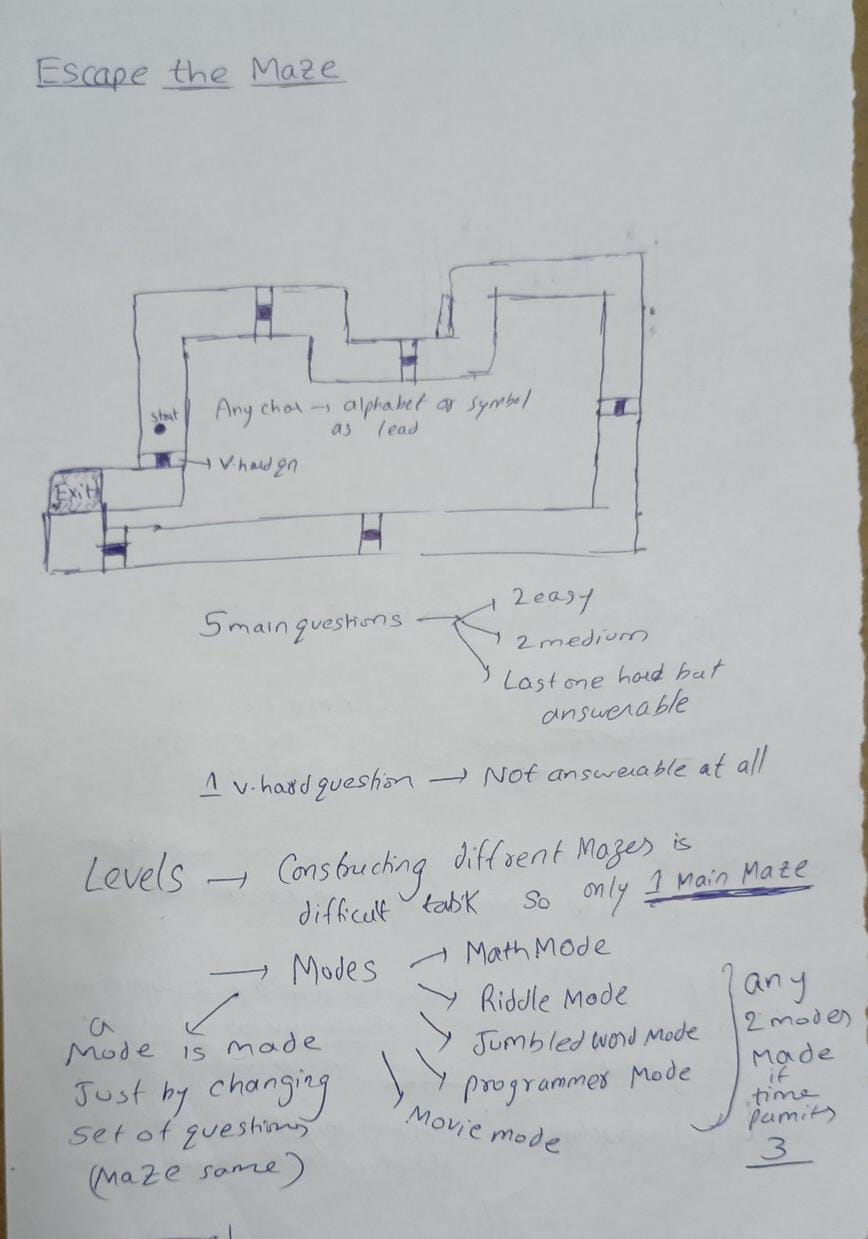 Escape the Maze
start
Any char → alphabet or symbol
as lead
→ V.hard qn
Exit
5 main questions → 2 easy
→ 2 medium
→ Last one hard but
answerable
1 v.hard question → Not answerable at all
Levels → Constructing diffrent Mazes is
difficult task so only 1 Main Maze
→ Modes → Math Mode
→ Riddle Mode
→ Jumbled word Mode
→ programmer Mode
→ Movie mode
any
2 modes
Made
if
time
pamits
3
a
Mode is made
Just by changing
set of questions
(Maze same)